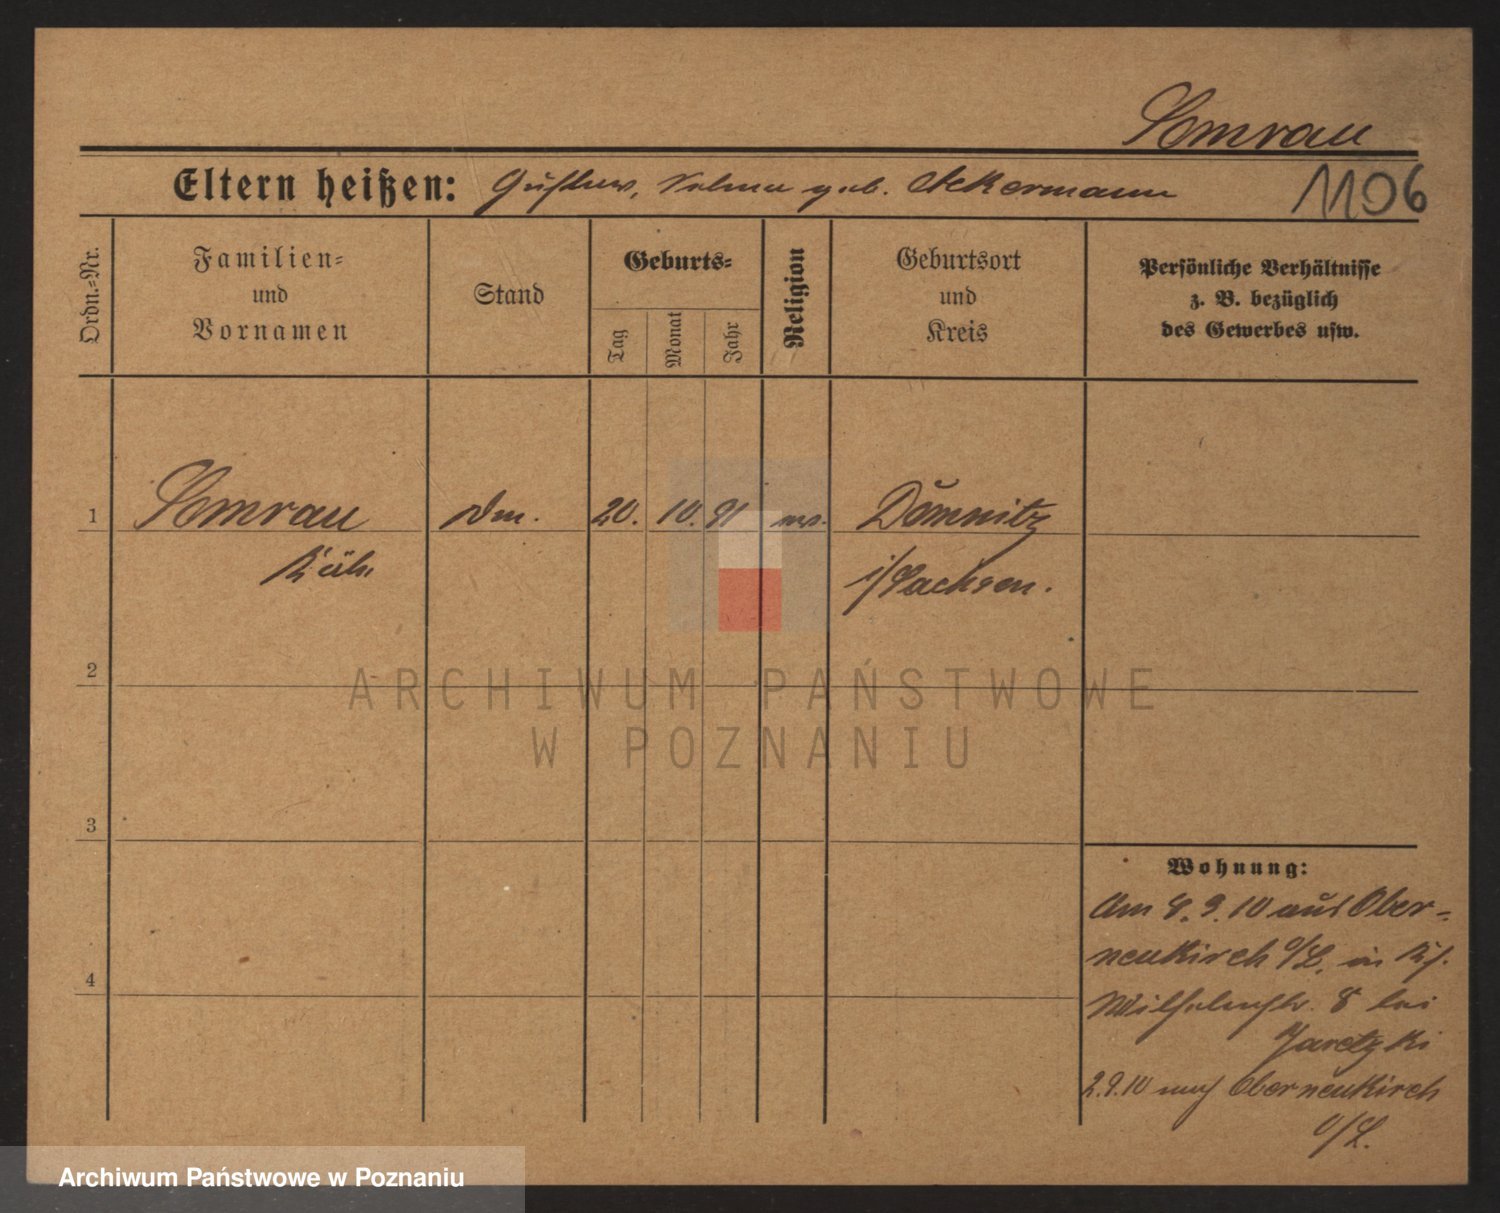 Semrau
Eltern heißen: Gustav, Selma geb. Ackermann 1106
Ordn.-Nr.
Familien- und Vornamen
Stand
Geburts-
Tag
Monat
Jahr
Religion
Geburtsort und Kreis
Persönliche Verhältnisse z. B. bezüglich des Gewerbes usw.
1 Semrau 20. 10. 91 Dömnitz
i/Sachsen.
2
ARCHIWUM PAŃSTWOWE
W POZNANIU
3
Wohnung:
Am 8. 9. 10 aus Ober-
neukirch o/L. in
4
Wilhelmstr. 8 bei
Jaretzki
2.9.10 nach Oberneukirch
o/L.
Archiwum Państwowe w Poznaniu